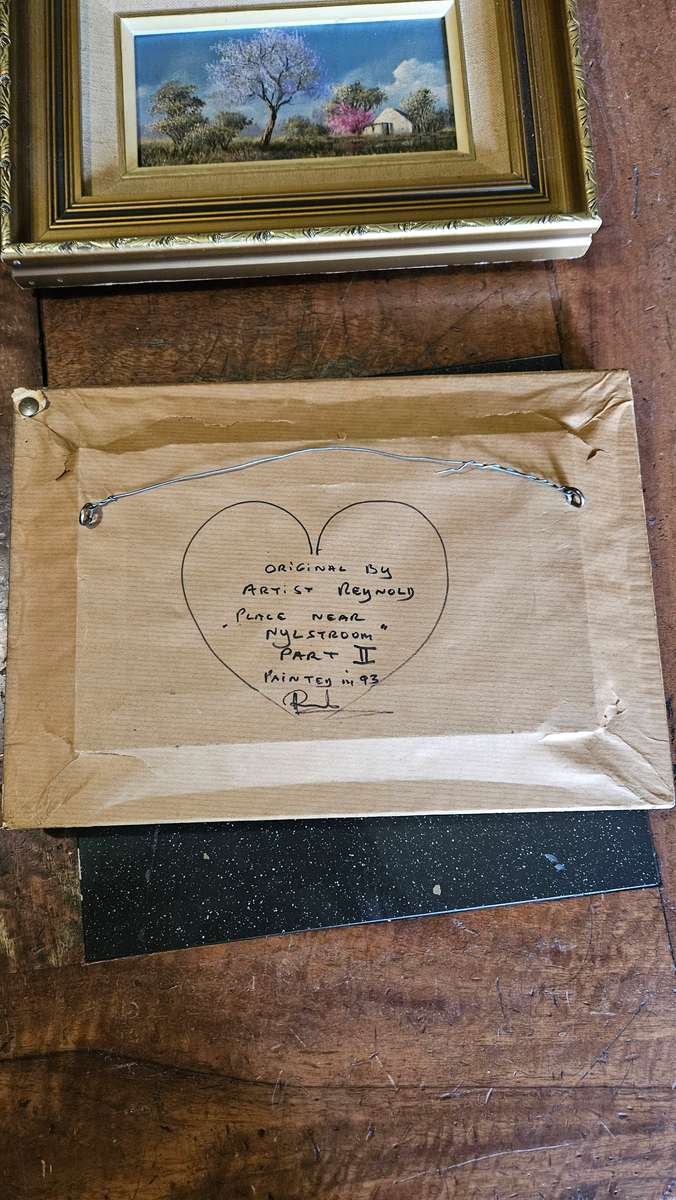 ORIGINAL BY
ARTIST REYNOLD
"PLACE NEAR
NYLSTROOM"
PART II
PAINTED in 93